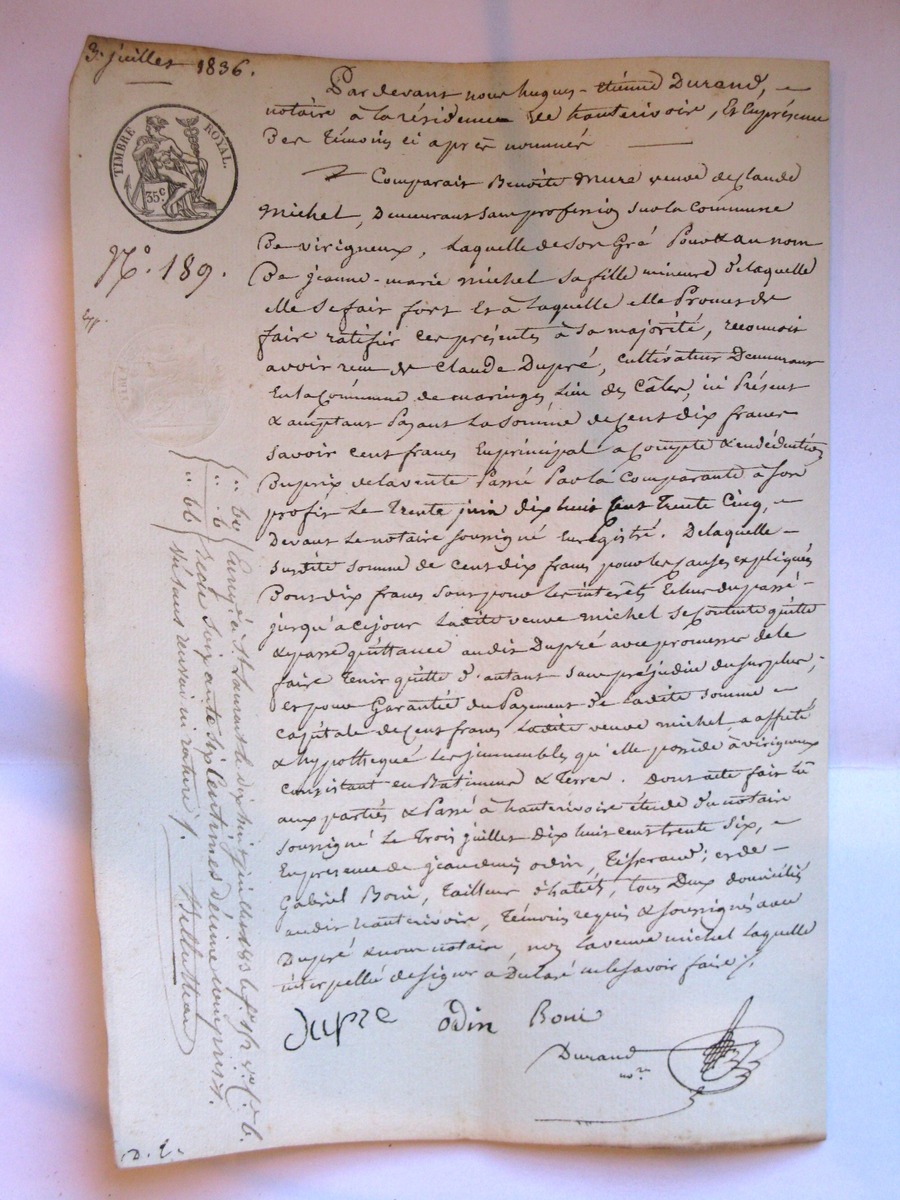 3. juillet 1836.
TIMBRE ROYAL.
35c.
N°. 189.
Par devant nous hugues-étienne Durand,
notaire à la résidence de hauterivoire, Et en présence
Des Témoins ci après nommés
Comparait Benoîte mure veuve de Claude
michel, Demeurant sans profession sur la Commune
De virigneux, Laquelle de son Gré Pour & au nom
De jeanne-marie michel sa fille mineure De laquelle
elle se fait fort Et à Laquelle elle Promet de
faire ratifier ces présentes à sa majorité, reconnoit
avoir reçu de Claude Dupré, cultivateur Demeurant
En la Commune de maringes, Lieu des Câtes, ici Présent
& comptant Payant La somme de Cent dix francs
savoir cent francs En principal a Compte & en déduction
Du prix de la vente Passée Par la Comparante à son
profit Le Trente juin Dix huit cent Trente Cinq,
Devant Le notaire soussigné Enregistré. De laquelle
susdite somme de cent dix francs pour les causes expliquées
Dont dix francs sont pour les intérêts Echus du passé
jusqu'à ce jour Ladite veuve michel se Contente quitte
& passe quittance audit Dupré avec promesse de le
faire Tenir quitte D'autant sans préjudice du surplus,
Et pour Garantie du Payement De Ladite somme
Capitale de Cent francs Ladite veuve michel a affecté
& hypothéqué Les immeubles qu'elle possède à virigneux
Consistant en Batiments & Terres. Dont acte fait lu
aux parties & Passé à hauterivoire étude du notaire
soussigné Le Trois juillet Dix huit cent trente six,
En présence de jean denis odin, Tisserand, et de
Gabriel Boni, Tailleur d'habits, tous Deux domiciliés
audit hauterivoire, Témoins requis & soussignés avec
Dupré & nous notaire, non La veuve michel Laquelle
interpellée de signer a Déclaré ne le savoir faire
Dupre odin Boni
Durand
nore
60
6
66
Enregé à St Laurent le dix huit juillet 1836 fo
reçu soixante six Centimes décime compris.
D. E.